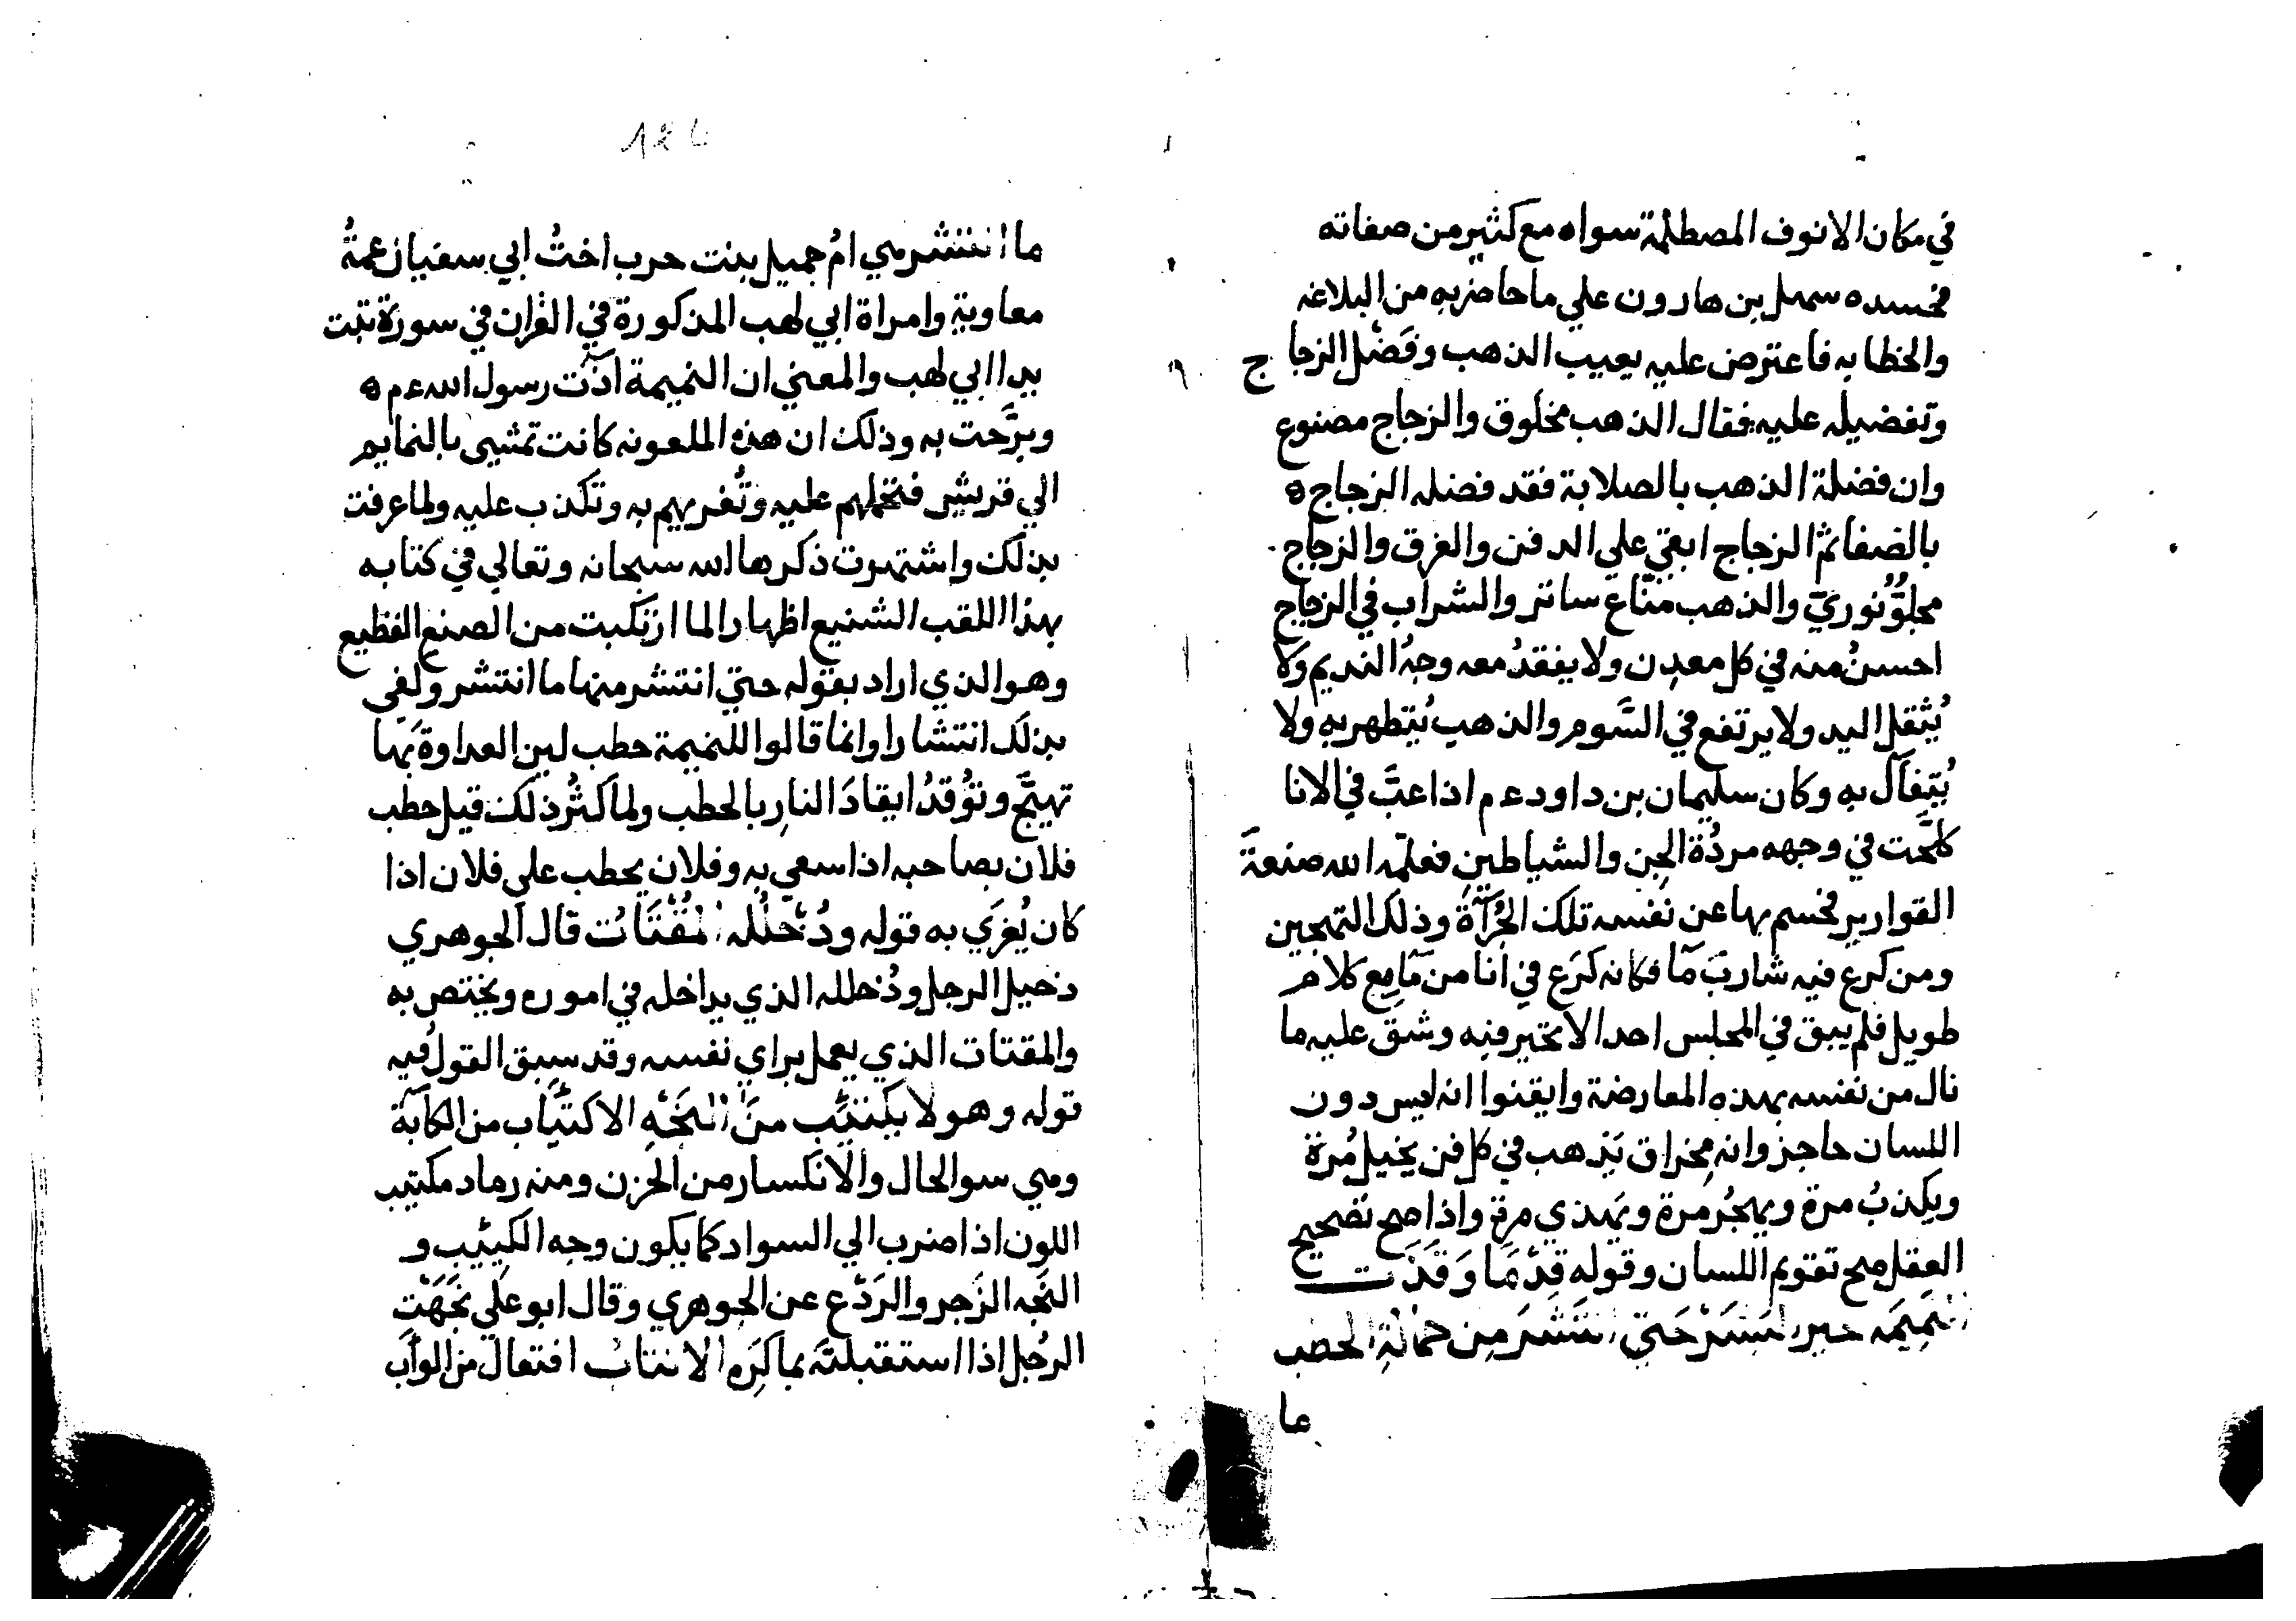 في مكان الانوف المصطلمة سواه مع كثير من صفاته
فحسده سهل بن هارون علي ما حاضر به من البلاغه
والخطابه فاعترض عليه بعيب الذهب وفَضْل الزجاج
وتفضيله عليه فقال الذهب مخلوق والزجاج مصنوع
وان فضلة الذهب بالصلابة فقد فضله الزجاج ه
بالصفا ثم الزجاج ابقي علي الدفن والغرق والزجاج
مجلوٌّ نوريّ والذهب منّاع ساتر والشراب في الزجاج
احسنُ منه في كل معدن ولا يفقدُ معه وجهُ النديم ولا
يُثقل اليد ولا يرتفع في السَّوم والذهب يُتطهر به ولا
يُتفآل به وكان سليمان بن داود ع م اذا عبَّ في الانا
كلحّت في وجهه مردُة الجن والشياطين فعلمه الله صنعةَ
القوارير فحسم بها عن نفسه تلك الجُرآة وذلك التهجين
ومن كرع فيه شاربَ مآ فكانه كرَع في انا من مآ مع كلام
طويل فلم يبق في المجلس احد الا تحير فيه وشق عليه ما
نال من نفسه بهذه المعارضة وايقنوا انه ليس دون
اللسان حاجز وانه مخراق يَذهب في كل فن يخيل مُرة
ويكذبُ مرة ويهجُر مرة ويَهذي مرة واذا صح تصحيح
العقل صح تقويم اللسان وقوله قِدْمًا وَقَذَت
النميمَه خير البَشَرْ حَتي انتَشَرَ مِن حمالةِ الحطب
ما
186
ما انتشر هي امُ جميل بنت حرب اختُ ابي سفيان عمةُ
معاوية وامراة ابي لهب المذكورة في القران في سورة تبت
يدا ابي لهب والمعني ان النميمة اذَّت رسول الله ع م ه
وبرَّحت به وذلك ان هذه الملعونه كانت تمشي بالنمايم
الي قريش فتحملهم عليه وتُغريهم به وتكذب عليه ولما عرفت
بذلك واشتهرت ذكرها الله سبحانه وتعالي في كتابه
بهذا اللقب الشنيع اظهارا لما ارتكبت من الصنع الفظيع
وهو الذي اراد بقوله حتي انتشر منها ما انتشر ولفي
بذلك انتشارا وانما قالوا للنميمة حطب لين العداوة بها
تهيَّج وتوُقدُ ايقادَ النارِ بالحطب ولما كثُر ذلك قيل حطب
فلان بصاحبه اذا سعي به وفلان يحطب علي فلان اذا
كان يُغرَي به قوله ودُخْلُله المُقْتَاتُ قال الجوهري
دخيل الرجل ودُخلله الذي يداخله في اموره ويختص به
والمقتات الذي يعمل براي نفسه وقد سبق القول فيه
قوله وهو لا يكتئب من النَجْهِ الاكتئاب من الكآبة
وهي سو الحال والانكسار من الحُزن ومنه رماد مكتيب
اللون اذا ضرب الي السواد كما يكون وجه الكيئيب و
النَجْه الزَجر والرَدْع عن الجوهري وقال ابو علي نَجَهْت
الرجُل اذا استقبلتَه بما كَرِه الانتابُ افتعال من الوأب